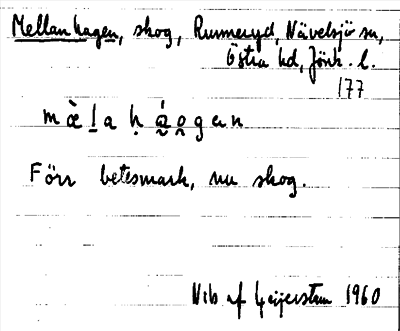 Mellanhagen, skog, Rummeryd, Nävelsjö sn,
Östra hd, Jönk. l.
177
mæ̀l̲a ḥá̰o̰gan
Förr betesmark, nu skog.
Vib af Geijerstam 1960